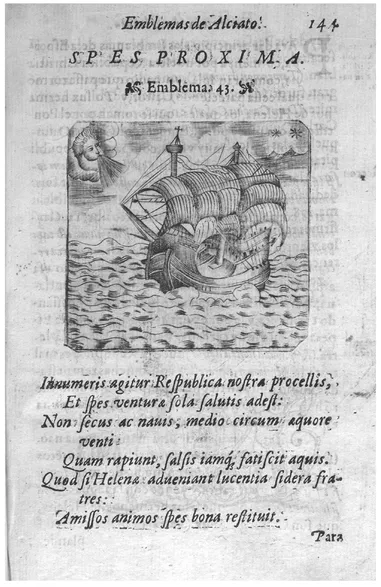 Emblemas de Alciato. 144
SPES PROXIMA.
Emblema. 43.
Innumeris agitur Reſpublica noſtra procellis,
Et ſpes venturæ ſola ſalutis adeſt:
Non ſecus ac nauis, medio circum æquore
venti:
Quam rapiunt, ſalſis iamq́; fatiſcit aquis.
Quod ſi Helenæ adueniant lucentia ſidera fra-
tres:
Amiſſos animos ſpes bona reſtituit.
Para